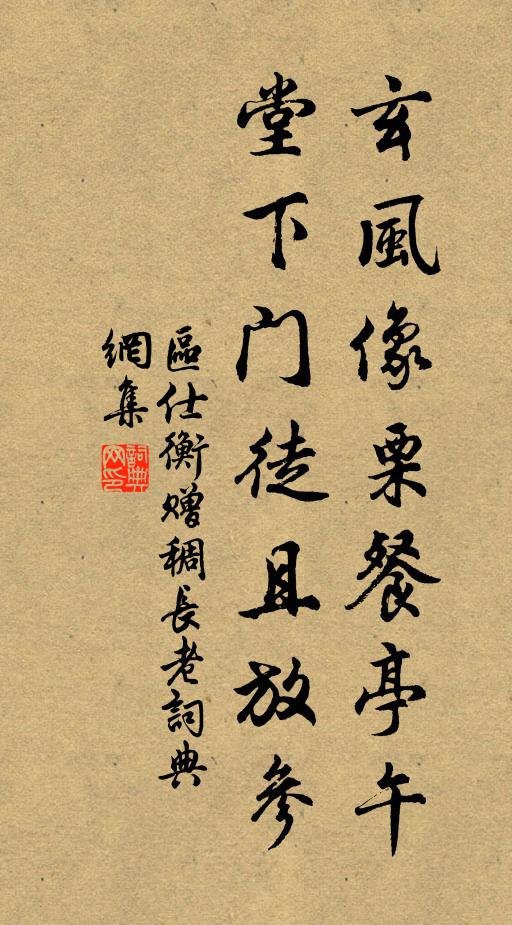 玄風像栗餐亭午
堂下門徒且放參
區仕衡贈稠長老詞典
網集
詞典網印